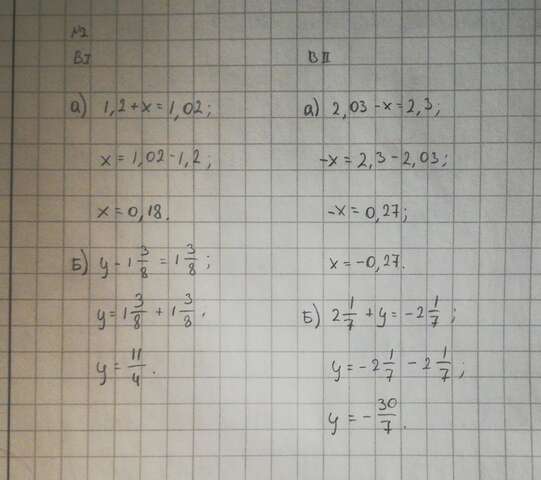 №2
В I
а) 1,2 + x = 1,02;
x = 1,02 - 1,2;
x = 0,18.
Б) y - 1 3/8 = 1 3/8;
y = 1 3/8 + 1 3/8.
y = 11/4.
В II
а) 2,03 - x = 2,3;
-x = 2,3 - 2,03;
-x = 0,27;
x = -0,27.
Б) 2 1/7 + y = -2 1/7;
y = -2 1/7 - 2 1/7;
y = - 30/7.